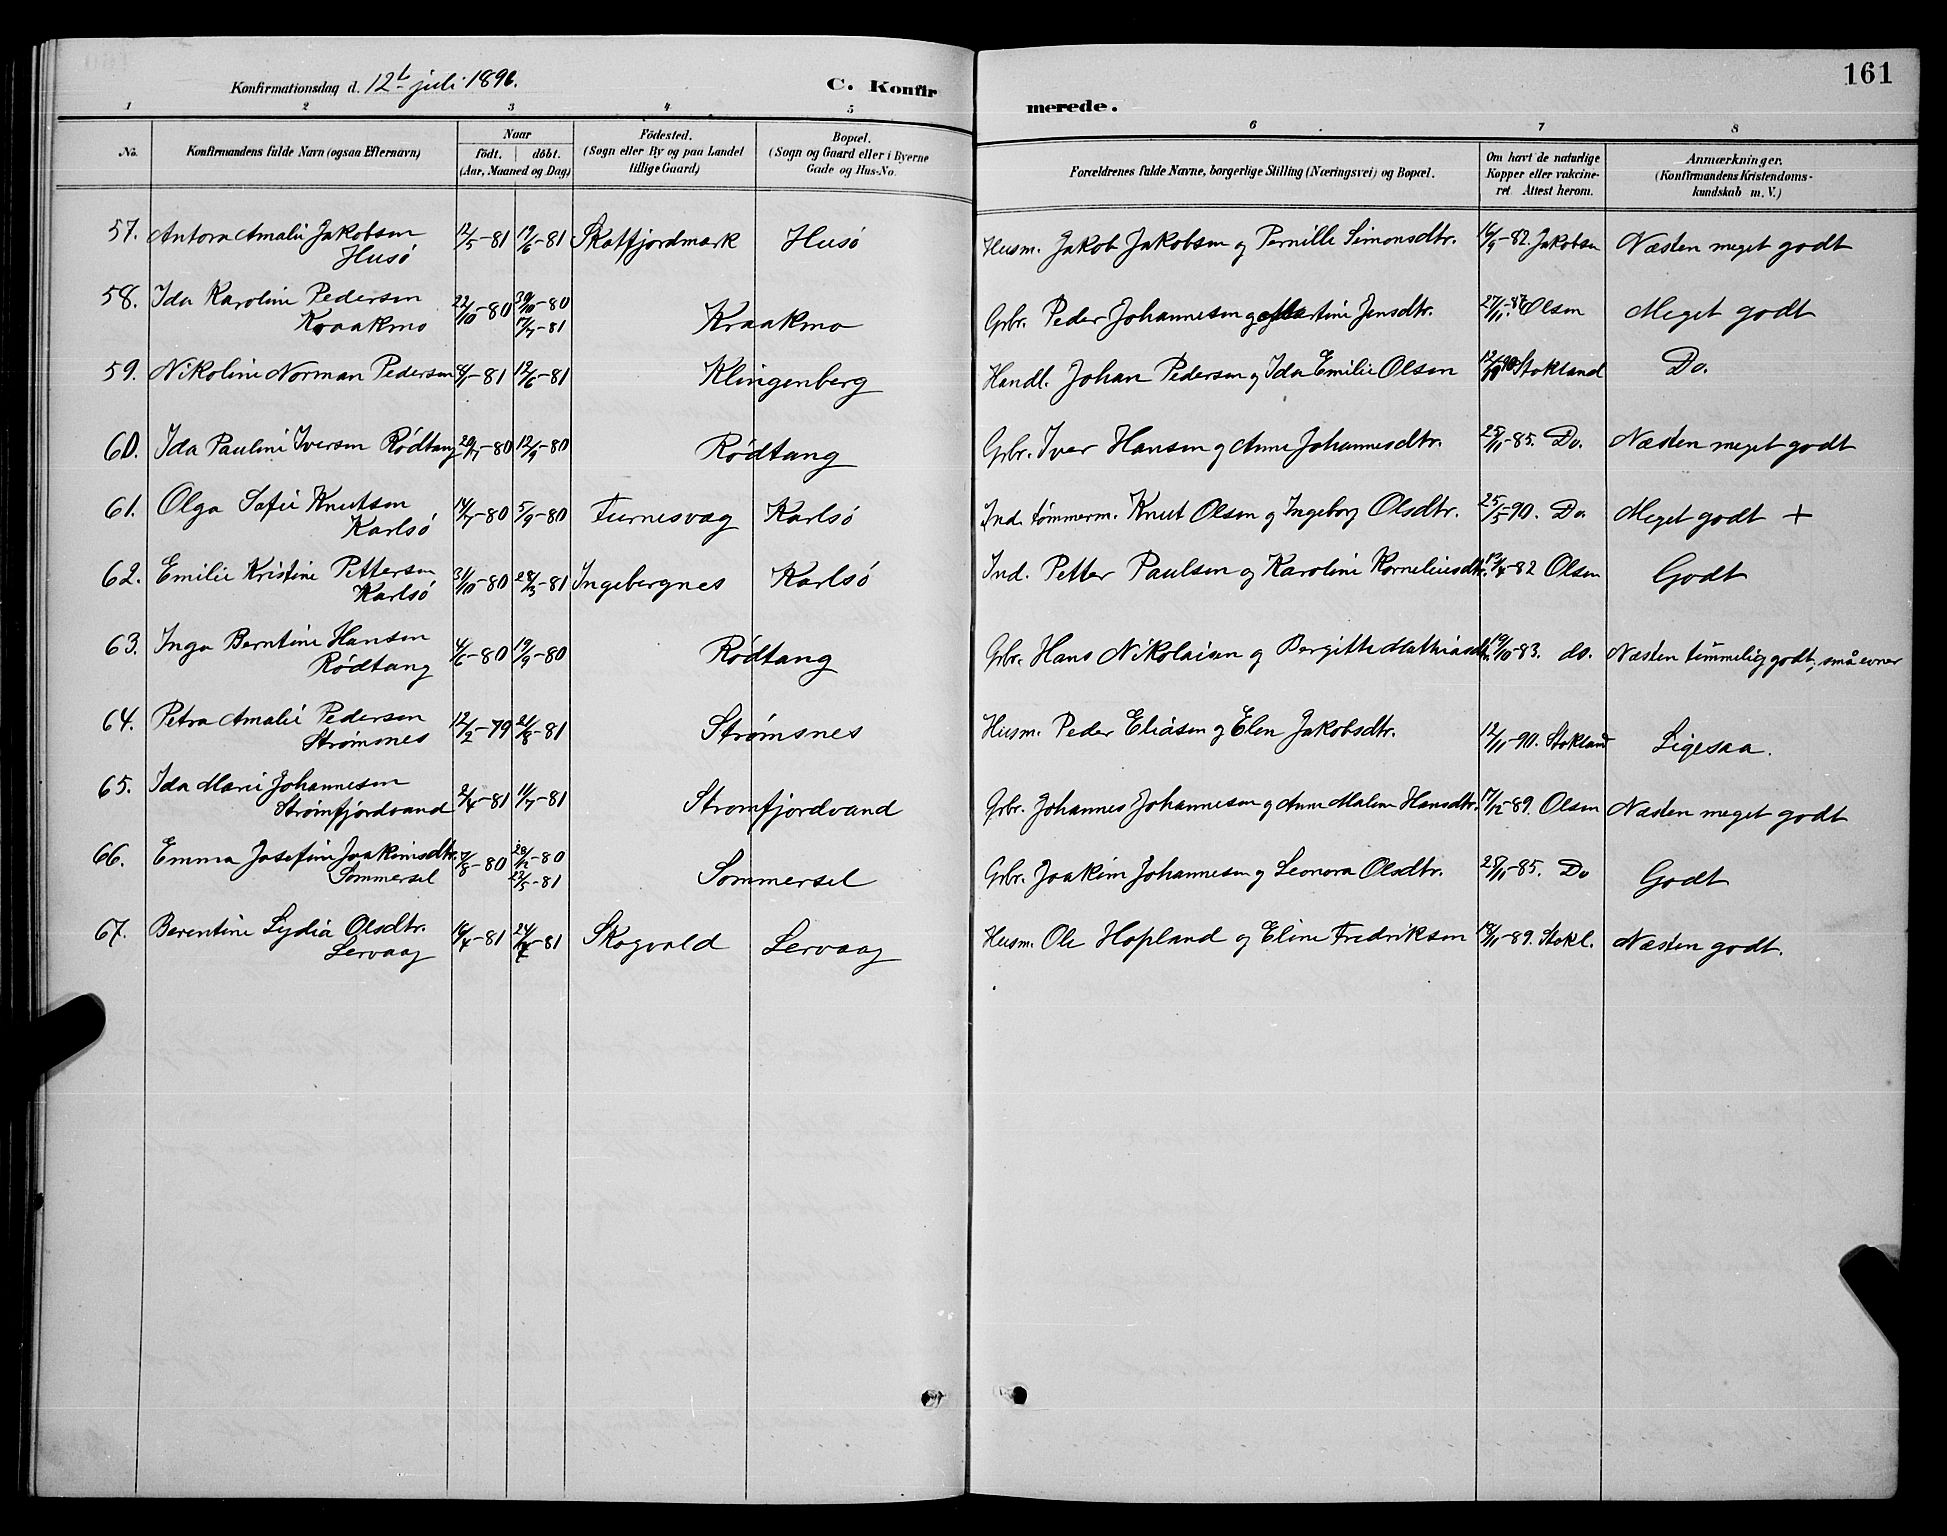 161
Konfirmationsdag d. 12t juli 1896.
C. Konfirmerede.
1 2 3 4 5 6 7 8
No.
Konfirmandens fulde Navn (ogsaa Efternavn)
Naar
födt. döbt.
(Aar, Maaned og Dag)
Födested.
(Sogn eller By og paa Landet
tillige Gaard)
Bopæl.
(Sogn og Gaard eller i Byerne
Gade og Hus-No.
Forældrenes fulde Navne, borgerlige Stilling (Næringsvei) og Bopæl.
Om havt de naturlige
Kopper eller vakcine-
ret Attest herom.
Anmærkninger.
(Konfirmandens Kristendoms-
kundskab m. V.)
57. Antora Amalie Jakobsen 12/5-81 19/6-81 Skotfjordmark Husö Husm. Jakob Jakobsen og Pernille Simonsdtr. 16/9-82. Jakobsen Næsten meget godt
Husö
58. Ida Karoline Pedersen 22/10-80 30/10-80 Kraakmo Grbr. Peder Johannesen og Martine Jensdtr. Olsen Meget godt
Kraakmo 17/7-81
59. Nikoline Norman Pedersen 8/1-81 12/6-81 Klingenberg Handl. Johan Pedersen og Ida Emilie Olsen Stokland Do.
60. Ida Pauline Iversen Rödtang 29/7-80 12/9-80 Rödtang Grbr. Iver Hansen og Anne Johannesdtr. 25/11-85. Do. Næsten meget godt
61. Olga Sofie Knutsen 14/7-80 5/9-80 Furnesvag Karlsö Ind. tømmerm. Knut Olsen og Ingeborg Olsdtr. 25/5-90. Do. Meget godt +
Karlsö
62. Emilie Kristine Pettersen 31/10-80 28/3-81 Ingebergnes Karlsö Ind. Petter Paulsen og Karoline Korneliusdtr. 12/4-82 Olsen Godt
Karlsö
63. Inga Berntine Hansen 4/6-80 19/9-80 Rödtang Grbr. Hans Nikolaisen og Bergitte Mathiasdtr. 19/10-83. do. Næsten temmelig godt, små evner
Rödtang
64. Petra Amalie Pedersen 12/2-79 21/8-81 Strømsnes Husm. Peder Eliasen og Elen Jakobsdtr. 12/11-90. Stokland Ligesaa.
Strømsnes
65. Ida Marie Johannesen 2/4-81 11/7-81 Stromfjordvand Grbr. Johannes Johannesen og Anne Malene Hansdtr. 17/12-89. Olsen Næsten meget godt
Strømfjordvand
66. Emma Josefine Joakimsdtr. 7/8-80 28/12-80 Sommersel Grbr. Joakim Johannesen og Leonora Olsdtr. 25/11-85. Do Godt
Sommersel 22/5-81
67. Berentine Lydia Olsdtr. 16/4-81 24/4-81 Skogvold Lervaag Husm. Ole Hopland og Eline Fredriksen 18/11-89. Stokl. Næsten godt.
Lervaag